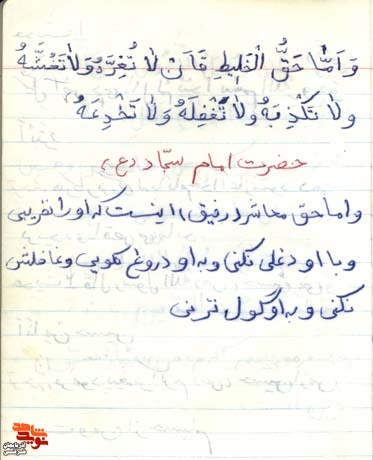 وَاَمّٰا حَقُّ الْخَلِیطِ فَاَنْ لاٰ تُغِرَّهُ وَلاٰ تَغُشَّهُ
ولاٰ تَکْذِبَهُ ولاٰ تُغْفِلَهُ وَلاٰ تَخْدِعَهُ
حضرت امام سجّاد (ع)
و اما حق معاشر (رفیق) اینست که او را نفریبی
و با او دغلی نکنی و به او دروغ نگویی و غافلش
نکنی و به او گول نزنی
نوید شاهد